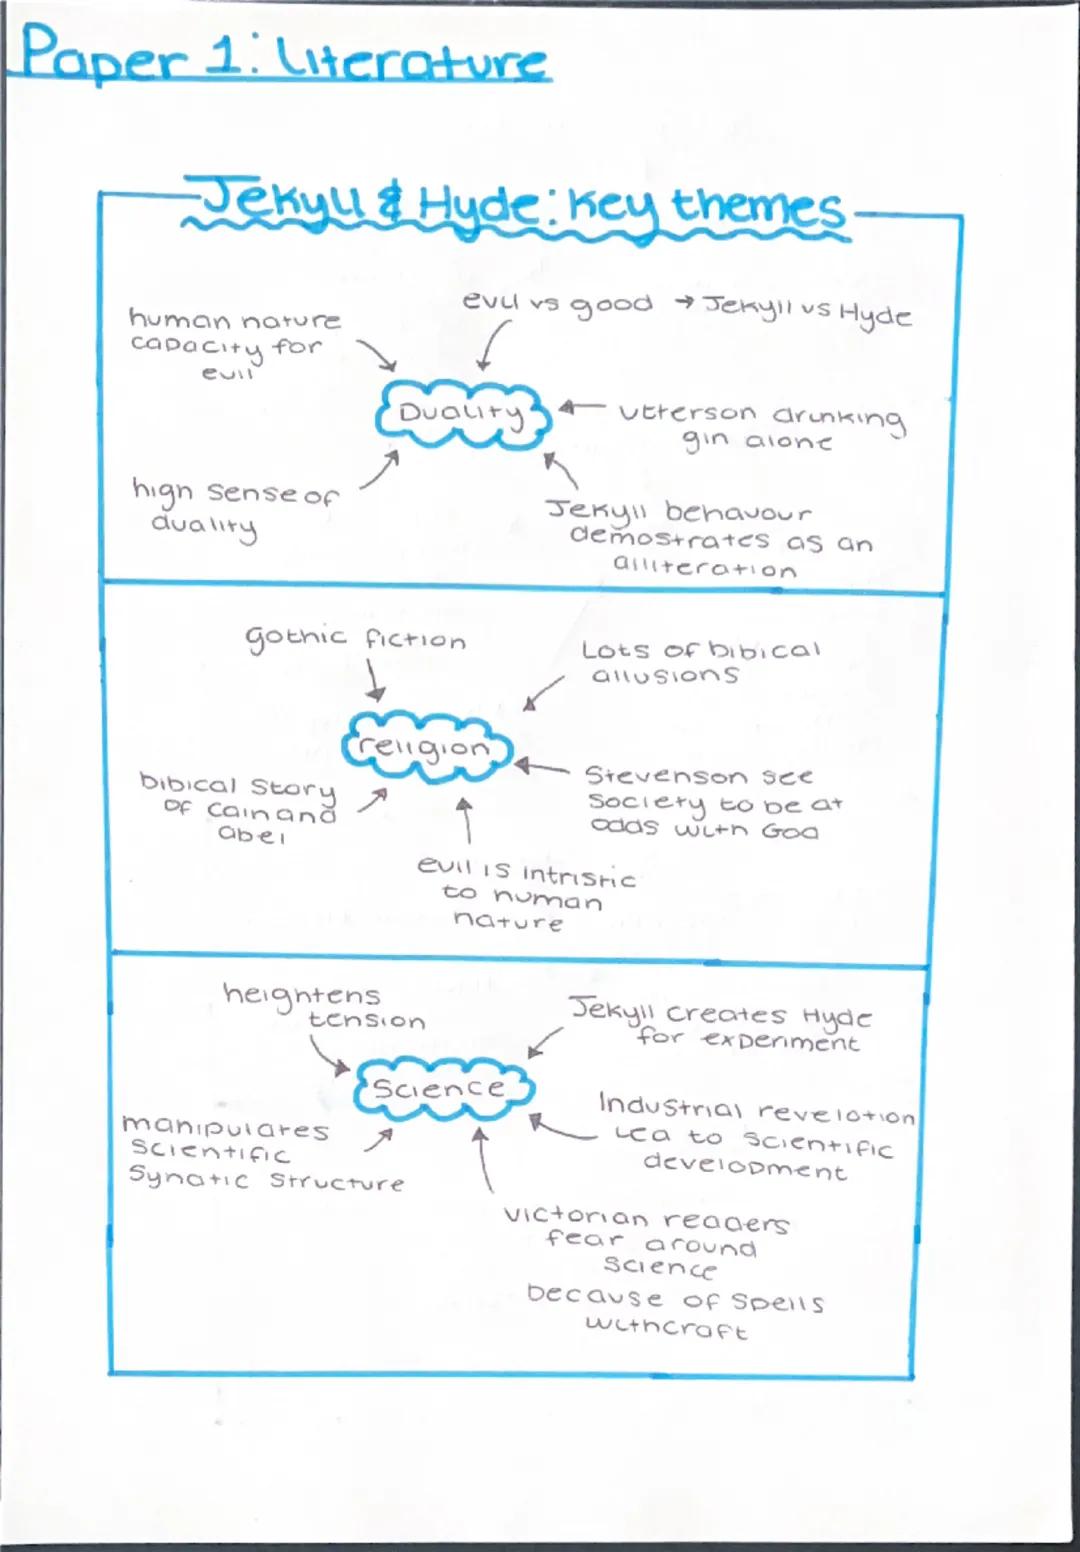 Paper 1: Literature
Jekyll & Hyde: Key themes
evil vs good → Jekyll vs Hyde
human nature
capacity for
evil
Duality
Utterson drinking
gin alone
high sense of
duality
Jekyll behavour
demostrates as an
alliteration
gothic fiction
Lots of bibical
allusions
religion
Stevenson see
society to be at
odds with God
bibical story
of cain and
abel
evil is intrisric
to human
nature
heightens
tension
Jekyll creates Hyde
for experiment
Science
Industrial revelotion
lea to scientific
development
manipulates
scientific
Synatic structure
victorian readers
fear around
science
because of spells
withcraft